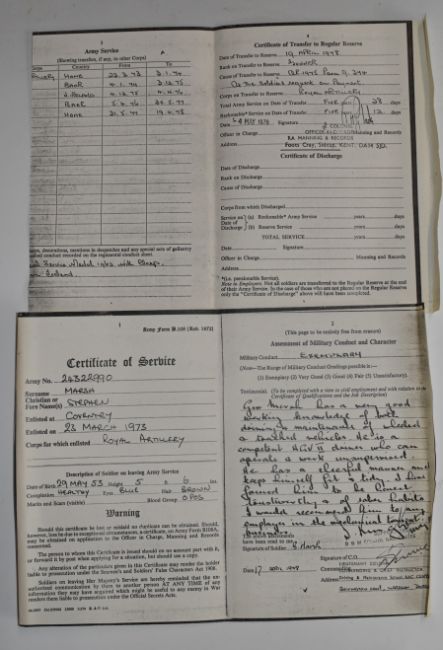 Army Service
(Showing transfer, if any, to other Corps)
Country From To
Home 23.3.73 3.1.74
BAOR 4.1.74 3.12.75
N. Ireland 4.12.75 4.4.76
BAOR 5.4.76
Home 19.4.78
Certificate of Transfer to Regular Reserve
Date of Transfer to Reserve 19 APRIL 1978
Rank on Transfer to Reserve GUNNER
Cause of Transfer to Reserve
Corps on Transfer to Reserve ROYAL ARTILLERY
Total Army Service on Date of Transfer FIVE years 28 days
Reckonable* Army Service on Date of Transfer FIVE years 12 days
Date 4 MAY 1978 Signature
Officer in Charge Manning and Records
RA MANNING & RECORDS
Address Foots Cray, Sidcup, KENT. DA14
Certificate of Discharge
Date of Discharge
Rank on Discharge
Cause of Discharge
Corps from which Discharged
Service on Date of Discharge (a) Reckonable* Army Service years days
(b) Reserve Service years days
TOTAL SERVICE years days
Date Signature
Officer i/c Manning and Records
Address
*(i.e. pensionable Service).
Note to Employers. Not all soldiers are transferred to the Regular Reserve at the
end of their Army Service. In the case of those who are not placed on the Regular Reserve
only the "Certificate of Discharge" above will have been completed.
1
Army Form B.108 (Rev. 1972)
Certificate of Service
Army No. 24322990
Surname MARSH
Christian or Fore Name(s) STEPHEN
Enlisted at COVENTRY
Enlisted on 23 MARCH 1973
Corps for which enlisted ROYAL ARTILLERY
Description of Soldier on leaving Army Service
Date of Birth 29 MAY 53 5 6
Complexion HEALTHY Eyes BLUE Hair BROWN
Marks and Scars (visible) Blood Group O POS
Warning
Should this certificate be lost or mislaid no duplicate can be obtained. Should,
however, loss be due to exceptional circumstances, a certificate, on Army Form B108A,
may be obtained on application to the Officer in Charge, Manning and Records
concerned.
The person to whom this Certificate is issued should on no account part with it,
or forward it by post when applying for a situation, but should use a copy.
Any alteration of the particulars given in this Certificate may render the holder
liable to prosecution under the Seamen's and Soldiers' False Characters Act 1906.
Soldiers on leaving Her Majesty's Service are hereby reminded that the
unauthorised communication by them to another person AT ANY TIME of any
information they may have acquired which might be useful to any enemy in War
renders them liable to prosecution under the Official Secrets Acts.
2
(This page to be entirely free from erasure)
Assessment of Military Conduct and Character
Military Conduct EXEMPLARY
(Note—The Range of Military Conduct Gradings possible is:—
(1) Exemplary (2) Very Good (3) Good (4) Fair (5) Unsatisfactory).
Gnr Marsh has a very good
working knowledge of both
maintenance of wheeled
& tracked vehicles. He is a
competent HGV II driver who can
operate & work unsupervised.
He has a cheerful manner and
keeps himself fit & tidy. I have
found him to be honest
& of sober habits
I would recommend him to any
employer in the
Signature of Soldier S Marsh
Signature of C.O.
Date 17 APRIL 1978
Address